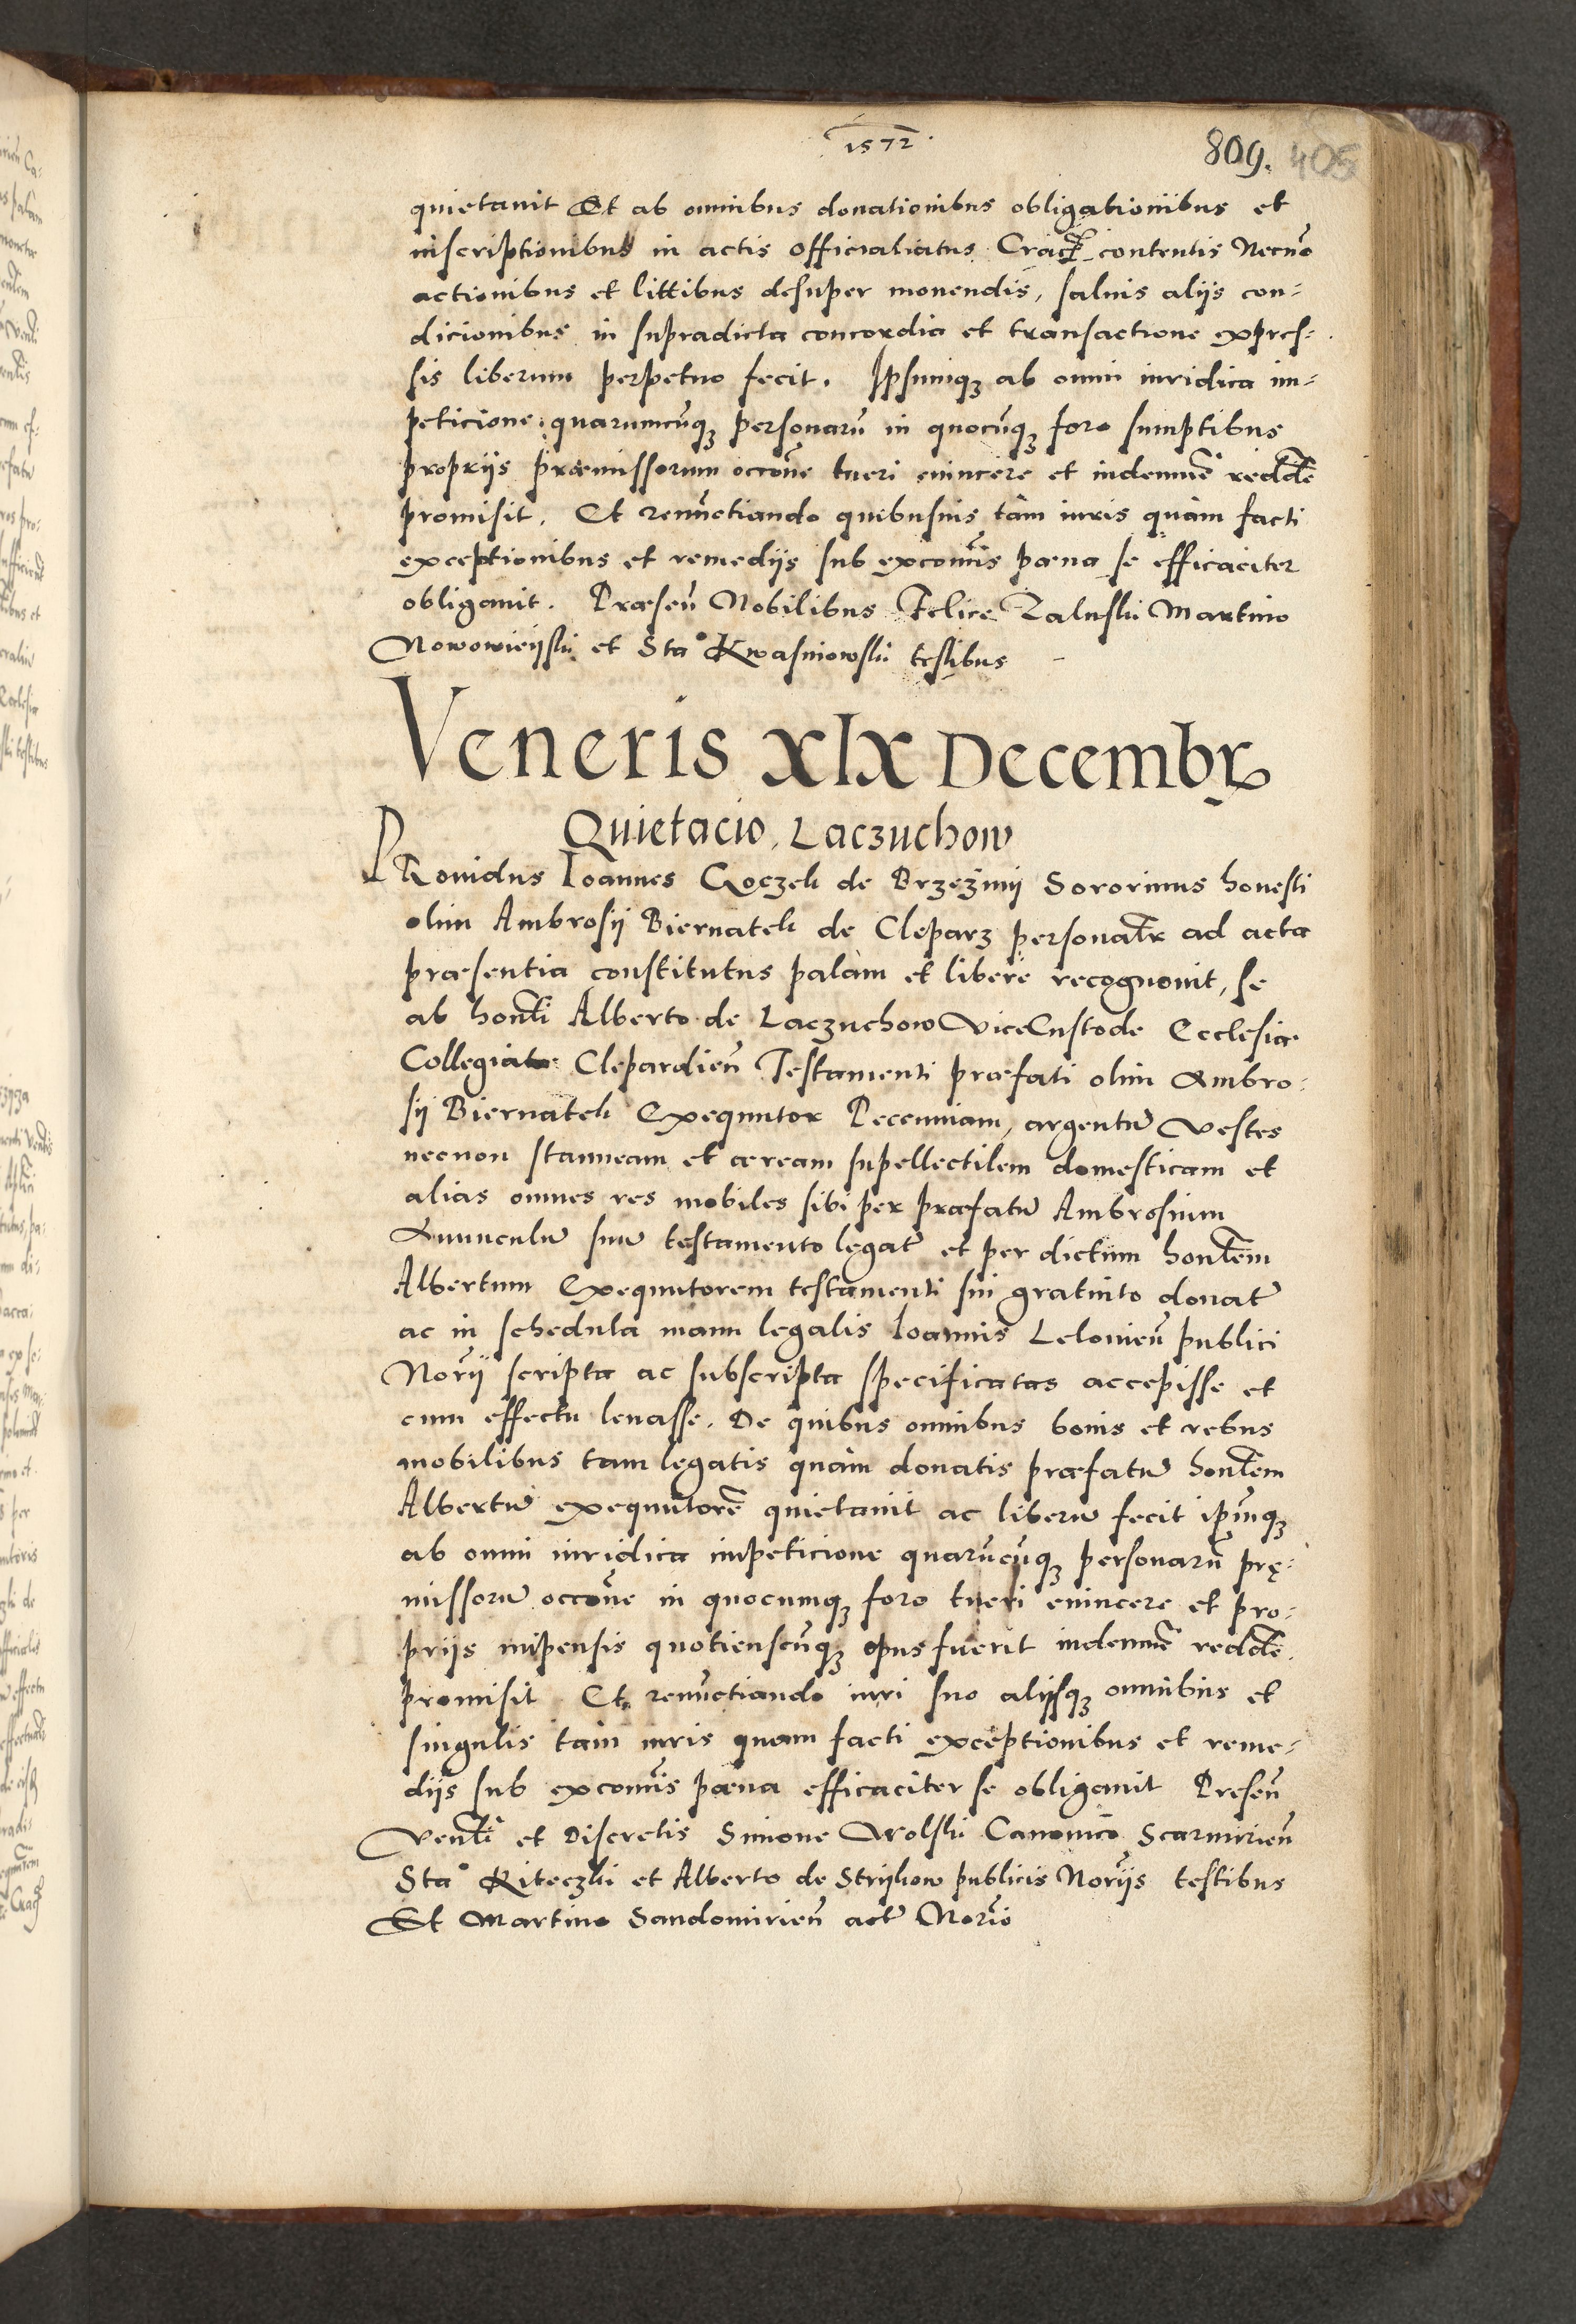 1572
809. 405
quietauit Et ab omnibus donationibus obligationibus et
inscriptionibus in actis officialatus Crac̃ contentis Necnõ
actionibus et littibus desuper mouendis, saluis alijs con=
dicionibus in supradicta concordia et transactione expres=
sis liberum perpetuo fecit. Ipsumqꝫ ab omni iuridica im=
peticione quarumcũqꝫ personarũ in quocũqꝫ foro sumptibus
proprijs præmissorum occõne tueri euincere et indemnẽ reddẽ
promisit. Et renũctiando quibusuis tàm iuris quàm facti
exceptionibus et remedijs sub excom̃is pœna se efficaciter
obligauit. Præseñ Nobilibus Felice Zaluski Martino
Nowowieijski et Sta° Kwasniowski testibus
Veneris XIX Decembr
Quietacio Laczuchow
PRouidus Ioannes Coczek de Brzeżnij Sororinus honesti
olim Ambrosij Biernatek de Cleparz personałr ad acta
præsentia constitutus palàm et liberè recognouit, se
ab honłi Alberto de Laczuchow ViceCustode Ecclesiæ
Collegiatæ Clepardieñ Testamenti præfati olim Ambro=
sij Biernatek Exequutor Pecuniam, argentũ Vestes
necnon stanneam et æream supellectilem domesticam et
alias omnes res mobiles sibi per præfatũ Ambrosium
Auunculũ suũ testamento legat̃ et per dictum honłem
Albertum Exequutorem testamenti sui gratuito donat̃
ac in schedula manu legalis Ioannis Lelouieñ publici
Norĩj scripta ac subscripta specificatas accepisse et
cum effectu leuasse. De quibus omnibus bonis et rebus
mobilibus tam legatis quàm donatis præfatũ honłem
Albertũ exequutorẽ quietauit ac liberũ fecit ip̃umqꝫ
ab omni iuridica impeticione quarũcũqꝫ personarũ prę=
missorũ occõne in quocumqꝫ foro tueri euincere et pro=
prijs impensis quotienscũqꝫ opus fuerit indemnẽ reddẽ
promisit Et renũctiando iuri suo alijsqꝫ omnibus et
singulis tàm iuris quam facti exceptionibus et reme=
dijs sub excom̃is pœna efficaciter se obligauit Preseñ
Venłi et Discretis Simone Wolski Canonico Scarmirieñ
Sta° Riteczki et Alberto de Strijkow publicis Norĩjs testibus
Et Martino Sandomirieñ act̃ Norĩo